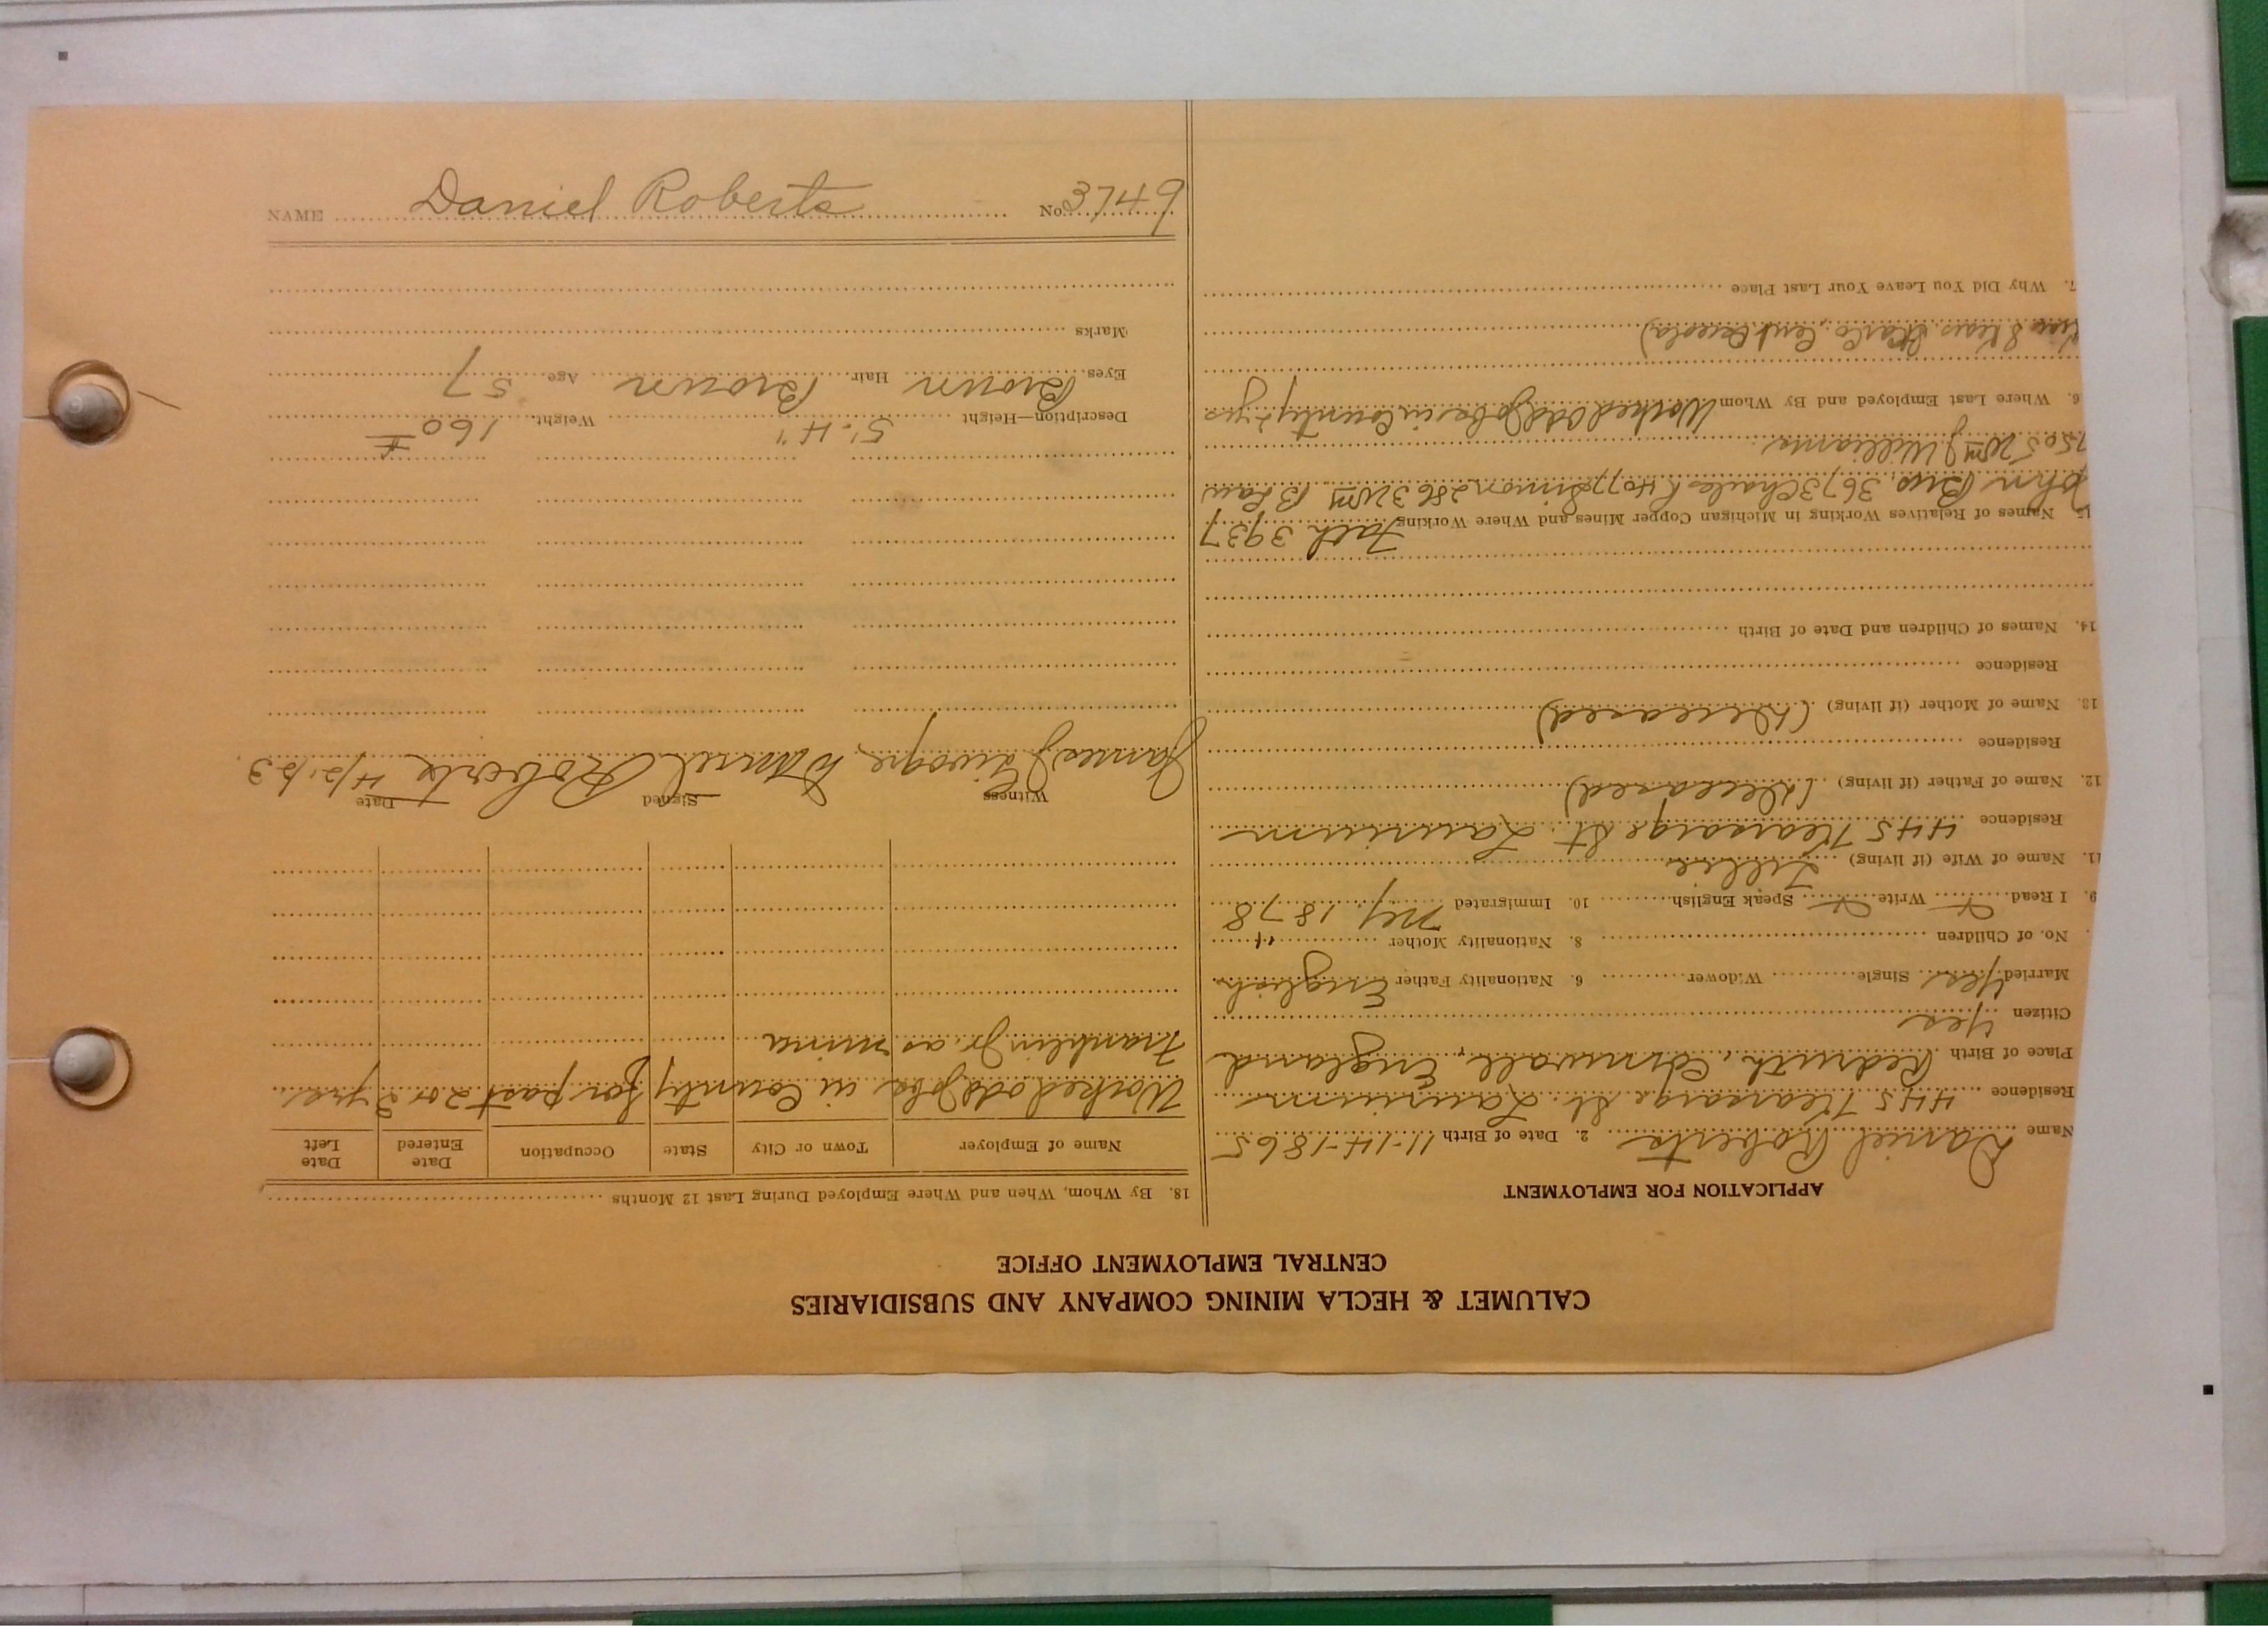 CALUMET & HECLA MINING COMPANY AND SUBSIDIARIES
CENTRAL EMPLOYMENT OFFICE
APPLICATION FOR EMPLOYMENT
Name Daniel Roberts 2. Date of Birth 11-14-1865
Residence 445 Kearsarge St. Laurium
Place of Birth Redruth, Cornwall, England
Citizen Yes
Married Yes Single Widower 6. Nationality Father English
No. of Children 8. Nationality Mother "
9. I Read Write Speak English 10. Immigrated 1878
11. Name of Wife (if living) Lillie
Residence 445 Kearsarge St. Laurium
12. Name of Father (if living) (Deceased)
Residence
13. Name of Mother (if living) (Deceased)
Residence
14. Names of Children and Date of Birth
15. Names of Relatives Working in Michigan Copper Mines and Where Working 3937
John Bro. 3673 Charles R 4077 Simon 2863 Wm B Law
7505 Wm J Williams
6. Where Last Employed and By Whom Worked odd Jobs in County 2 yrs
7. Why Did You Leave Your Last Place
18. By Whom, When and Where Employed During Last 12 Months
Name of Employer Town or City State Occupation Date Entered Date Left
Worked odd Jobs in County for past 2 or 3 yrs.
Franklin Jr. as miner
Witness Signed Date
James J Daniel Roberts 4/2/23
Description—Height 5'.4" Weight 160 #
Eyes Brown Hair Brown Age 57
Marks
NAME Daniel Roberts No. 3749